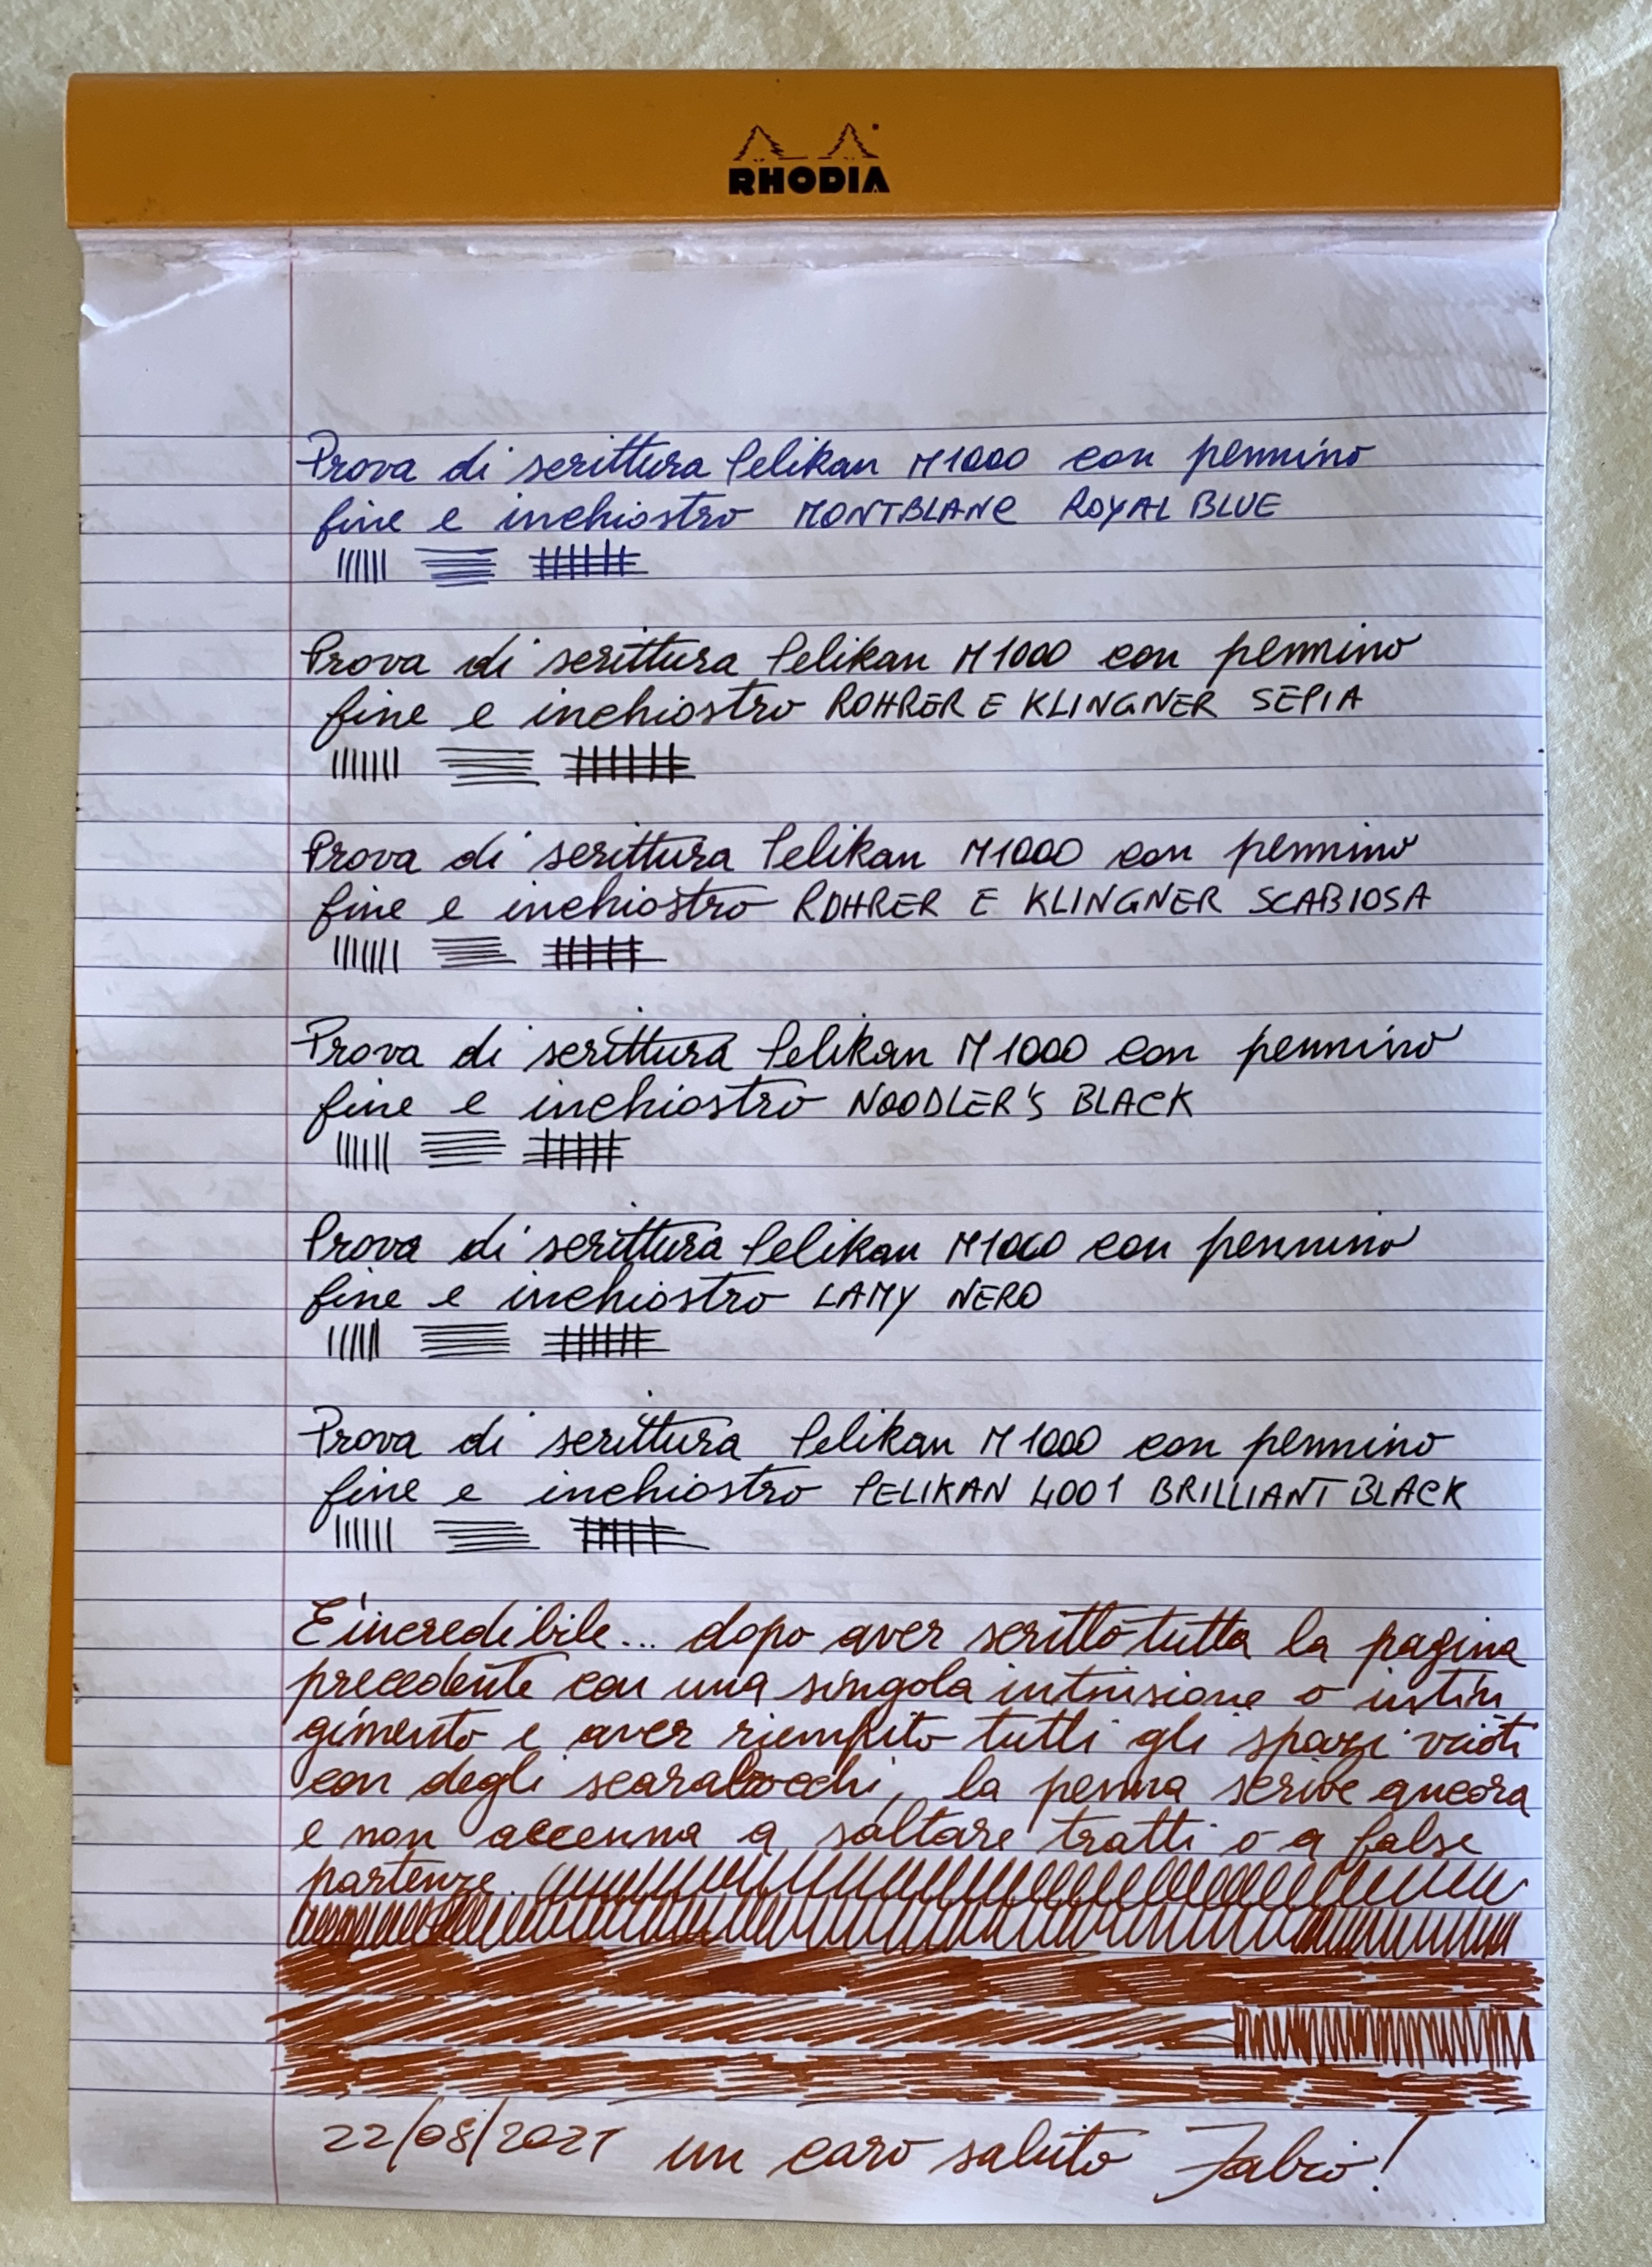 RHODIA
Prova di scrittura Pelikan M1000 con pennino
fine e inchiostro MONTBLANC ROYAL BLUE
Prova di scrittura Pelikan M1000 con pennino
fine e inchiostro ROHRER E KLINGNER SEPIA
Prova di scrittura Pelikan M1000 con pennino
fine e inchiostro ROHRER E KLINGNER SCABIOSA
Prova di scrittura Pelikan M1000 con pennino
fine e inchiostro NOODLER'S BLACK
Prova di scrittura Pelikan M1000 con pennino
fine e inchiostro LAMY NERO
Prova di scrittura Pelikan M1000 con pennino
fine e inchiostro PELIKAN 4001 BRILLIANT BLACK
E' incredibile... dopo aver scritto tutta la pagina
precedente con una singola intinsione o intin
gimento e aver riempito tutti gli spazi vuoti
con degli scarabocchi, la penna scrive ancora
e non accenna a saltare tratti o a false
partenze.
22/08/2021 un caro saluto Fabio!